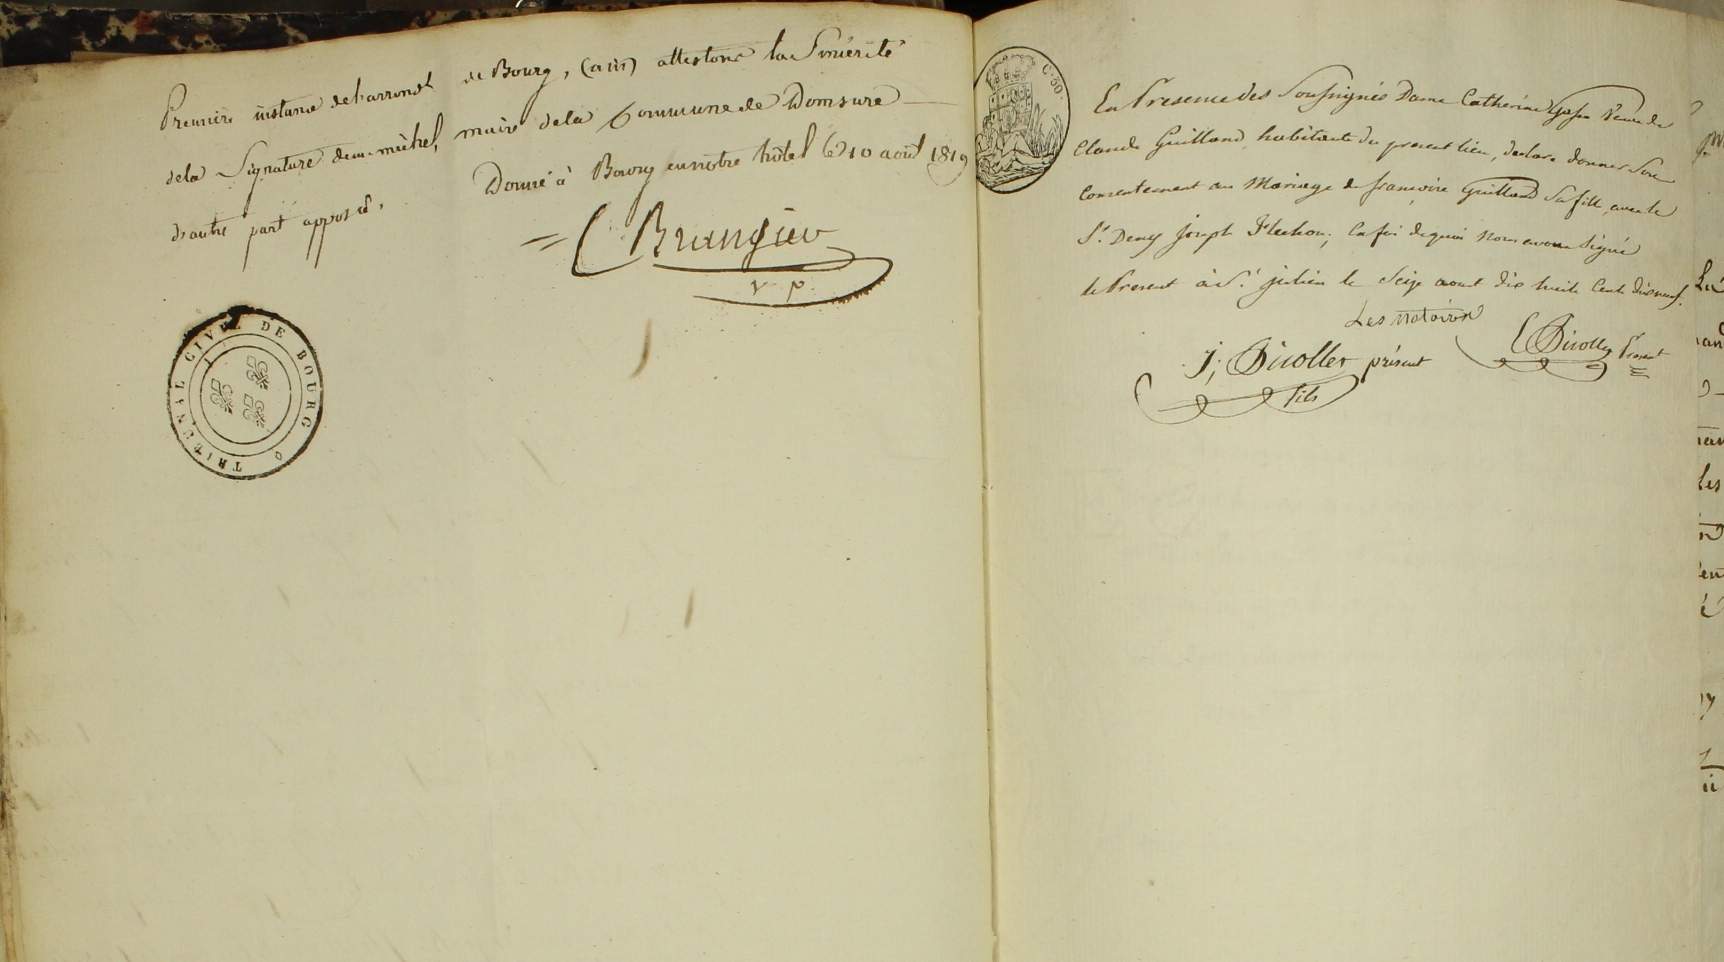 Première instance de l'arrondt de Bourg, (ain) attestons la Sincérité
de la Signature de m. michel, maire de la Commune de Domsure
d'autre part apposée.
Donné à Bourg en notre hôtel le 10 août 1819
v. p.
TRIBUNAL CIVIL DE BOURG
C. 50.
En Presence des Soussignés Dame Catherine veuve de
Claude Guilland habitante du present lieu, declare donner Son
Consentement au Mariage de francoise Guilland Sa fille avec le
Sr. Deny Joseph en foi de quoi Nous avons Signé
le Present à St. julien le Seize aout dix huit Cent dix neuf.
Les notoires
J; présent
fils
Present